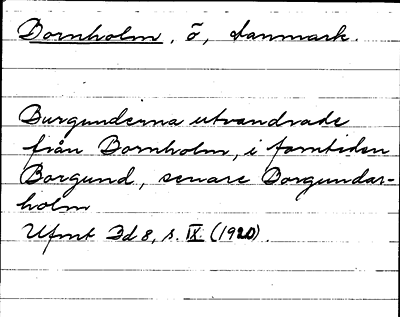 Bornholm, ö, Danmark.
Burgunderna utvandrade
från Bornholm, i forntiden
Borgund, senare Borgundar-
holm
Ufmt Bd 8, s. IX. (1920).